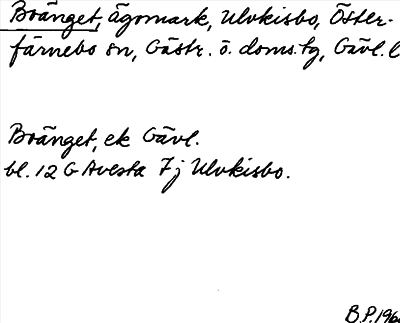 Boänget, ägomark, Ulvkisbo, Öster-
färnebo sn, Gästr. ö. doms. tg, Gävl. l
Boänget, ek Gävl.
bl. 12 G Avesta 7 j Ulvkisbo.
B.P. 196